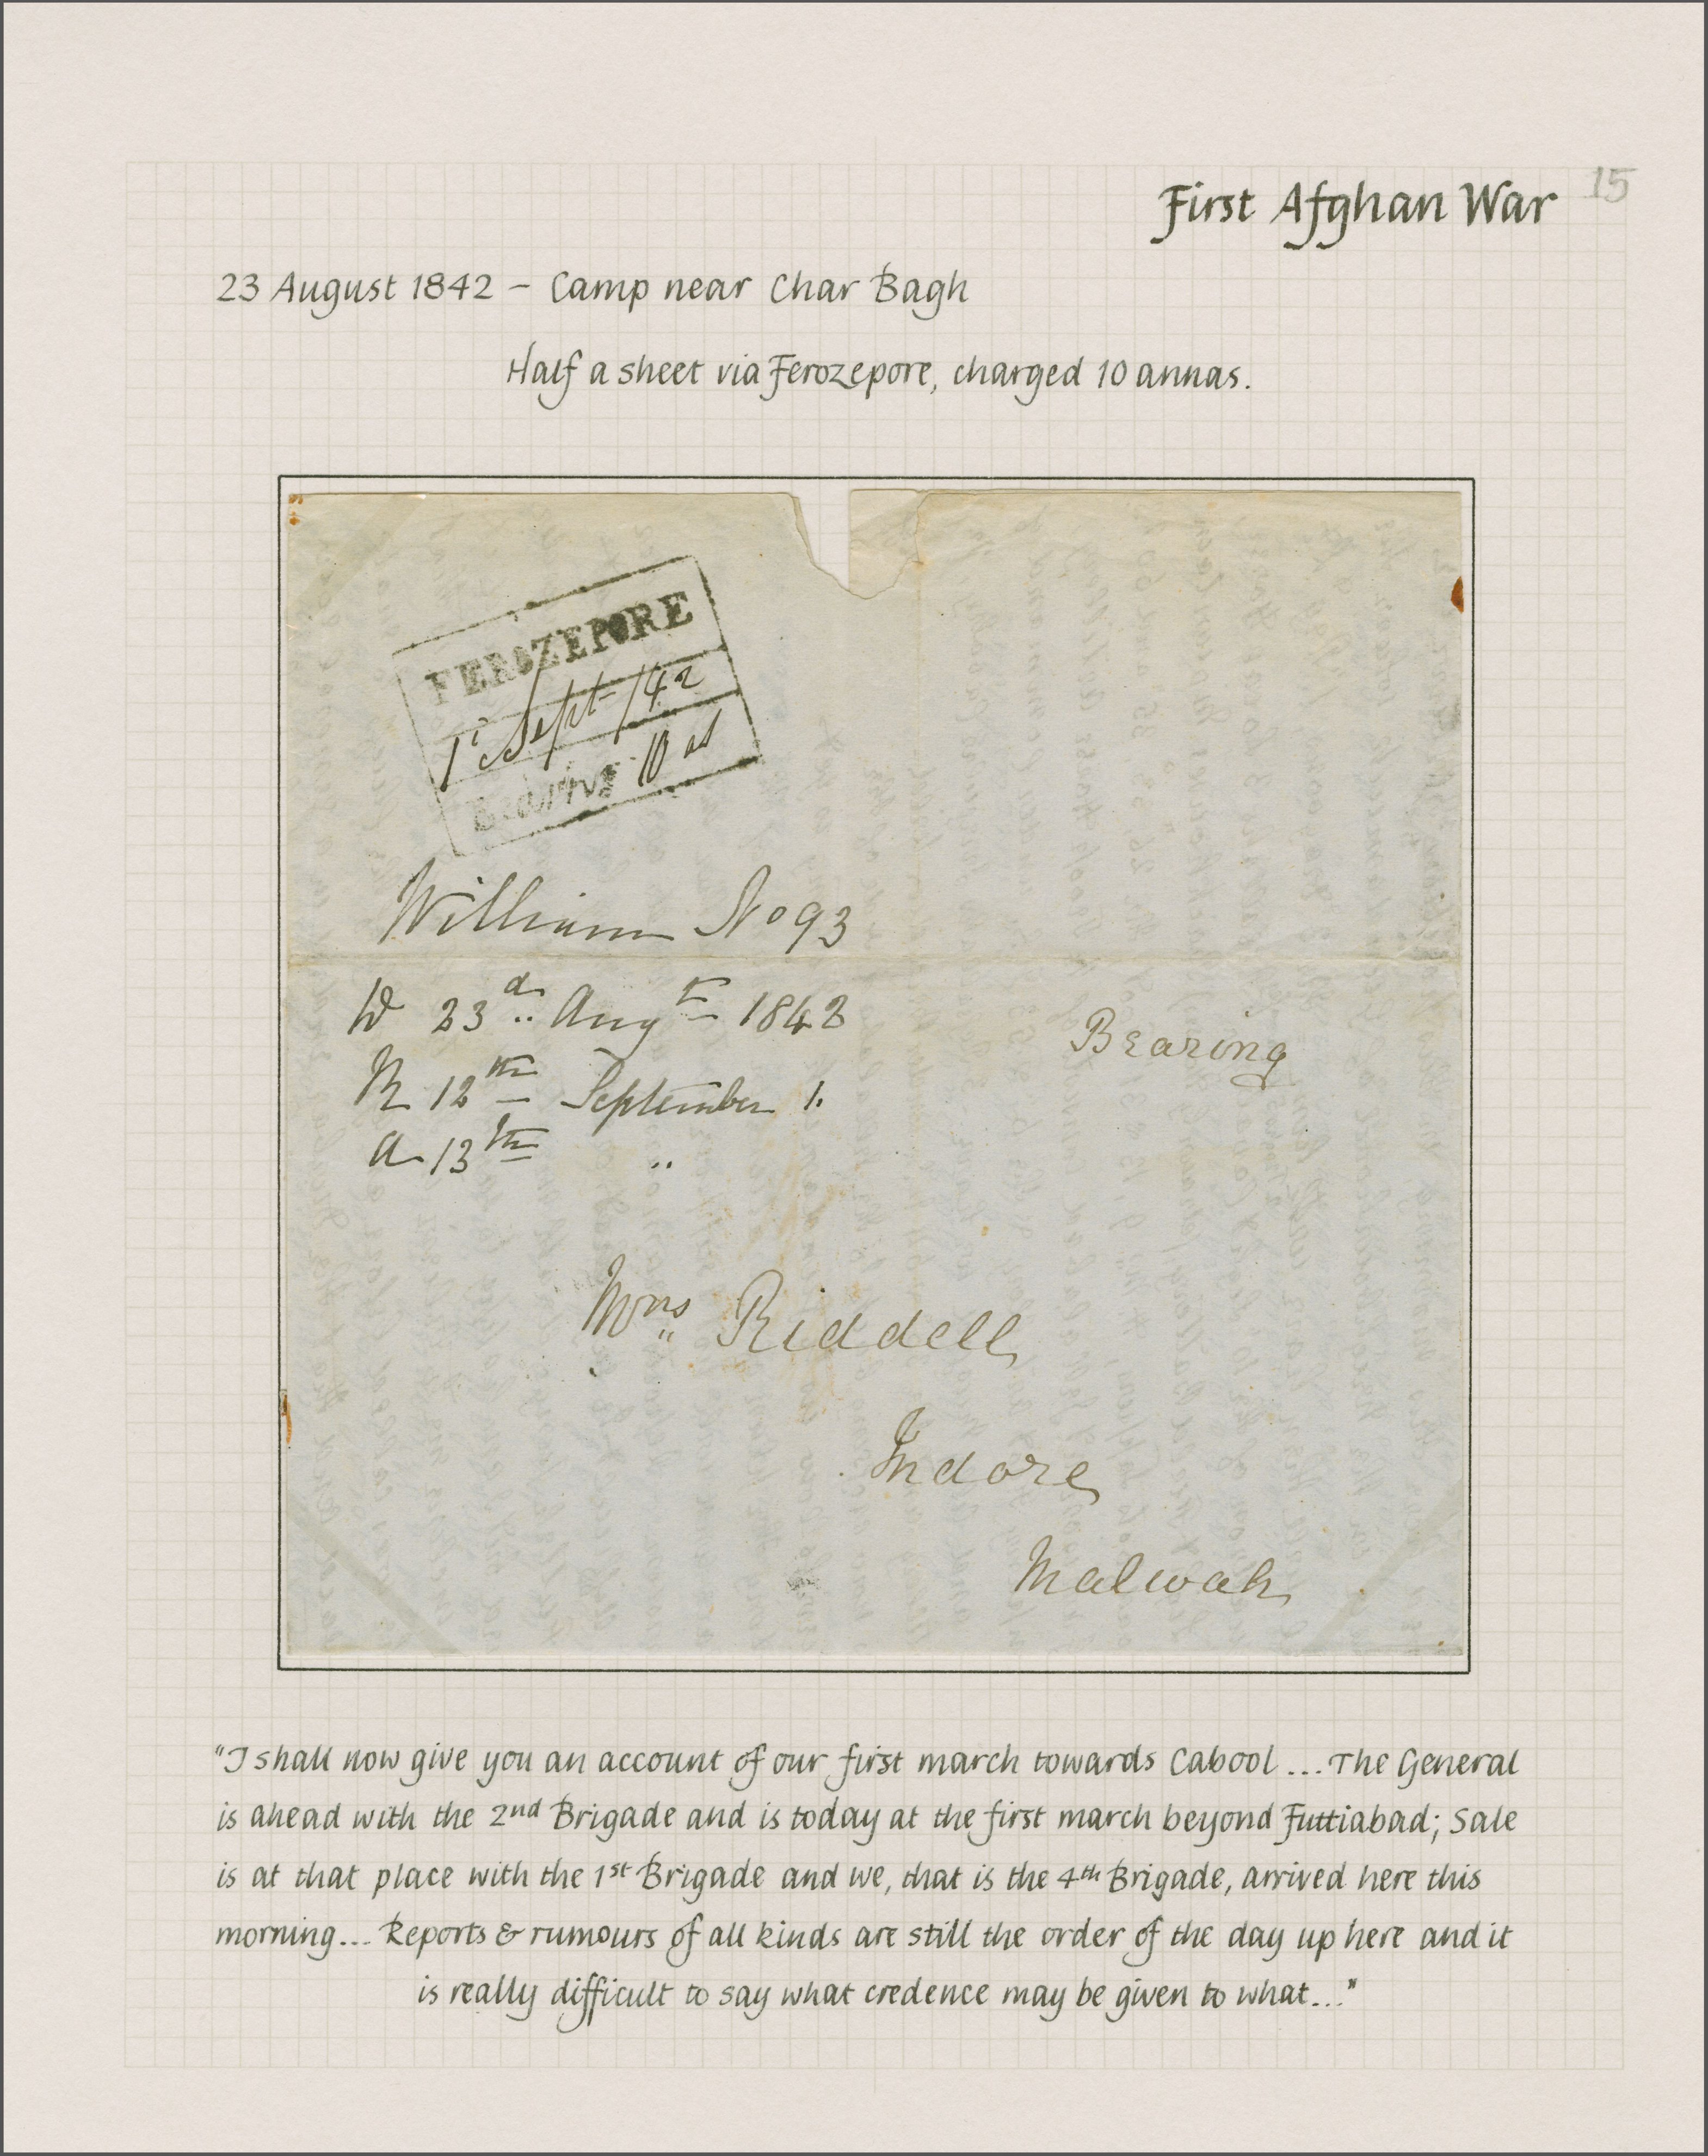 First Afghan War 15
23 August 1842 – Camp near Char Bagh
Half a sheet via Ferozepore, charged 10 annas.
FEROZEPORE
1 Sept /42
Bearing 10 as
William No 93
W 23d Augt 1842
R 12th September
A 13th "
Bearing
Mrs Riddell
Indore
Malwah
"I shall now give you an account of our first march towards Cabool ... The General
is ahead with the 2nd Brigade and is today at the first march beyond Futtiabad; Sale
is at that place with the 1st Brigade and we, that is the 4th Brigade, arrived here this
morning... Reports & rumours of all kinds are still the order of the day up here and it
is really difficult to say what credence may be given to what..."